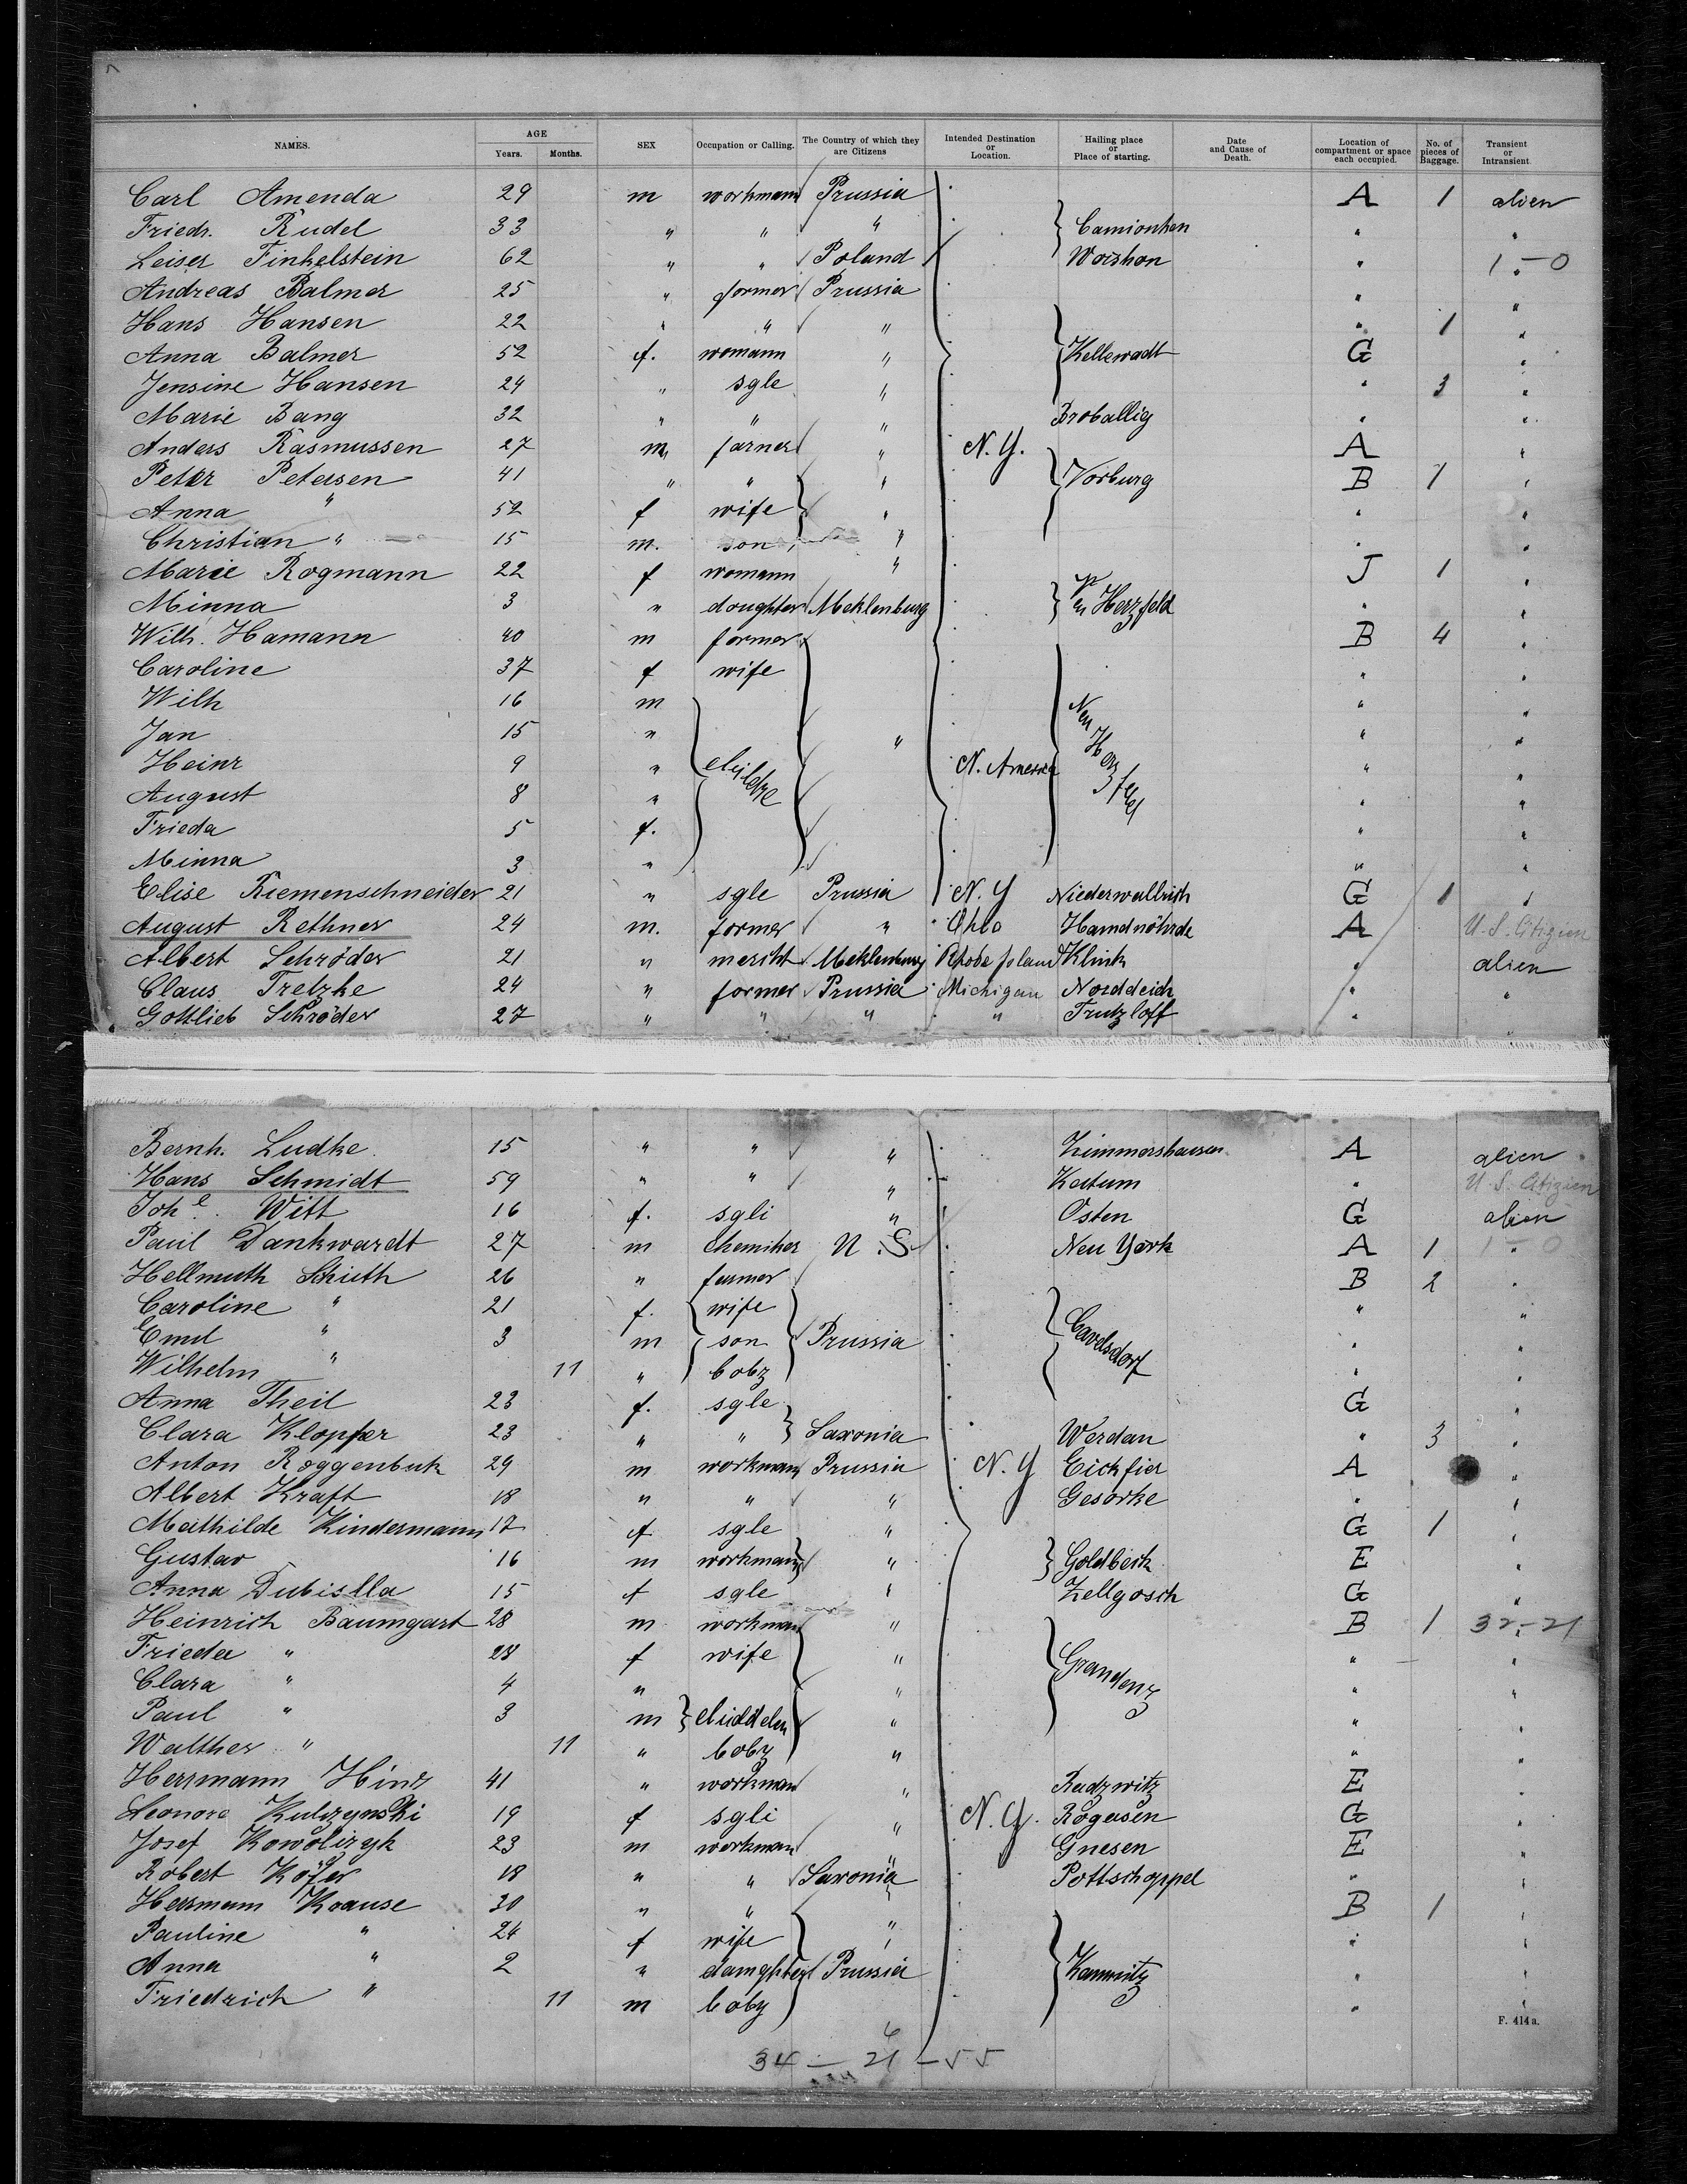 NAMES. AGE Years. Months. SEX Occupation or Calling. The Country of which they are Citizens Intended Destination or Location. Hailing place or Place of starting. Date and Cause of Death. Location of compartment or space each occupied. No. of pieces of Baggage. Transient or Intransient.
Carl Amenda 29 m workmann Prussia A 1 alien
Friedr. Rudel 33 " " " Camionken " "
Leiser Finkelstein 62 " " Poland " 1 - 0 "
Andreas Balmer 25 " former Prussia " "
Hans Hansen 22 " " " " 1 "
Anna Balmer 52 f. womann " Kellewadt G "
Jensine Hansen 24 " sgle " " 3 "
Marie Bang 32 " " " Broballig " "
Anders Rasmussen 27 m farner " N. Y. A "
Peter Petersen 41 " " " Vorburg B 1 "
Anna " 52 f wife " " "
Christian " 15 m. son " " "
Marie Rogmann 22 f womann " J 1 "
Minna 3 " doughter Meklenburg Herzfeld " "
Wilh. Hamann 40 m former B 4 "
Caroline 37 f wife " "
Wilh 16 m " "
Jan 15 " " " "
Heinr 9 " N. America " "
August 8 " " "
Frieda 5 f. " "
Minna 3 " " "
Elise Riemenschneider 21 " sgle Prussia N. Y G 1 "
August Rethner 24 m. former " Ohio A U. S. Citizien
Albert Schröder 21 " Meklenburg Klink " alien
Claus Tretzke 24 " former Prussia Michigan Norddeich " "
Gottlieb Schröder 27 " " " " Trutzloff " "
Bernh. Ludke 15 " " " Zimmershausen A alien
Hans Schmidt 59 " " " Katum " U. S. Citizien
Joh e. Witt 16 f. sgli " Osten G alien
Paul Dankwardt 27 m Chemiker U. S. New York A 1 1 - 0 "
Hellmuth 26 " farmer B 2 "
Caroline " 21 f. wife " "
Emil " 3 m son Prussia Cavelsdorf " "
Wilhelm " 11 " boby " "
Anna Theil 23 f. sgle G "
Clara Klopfer 23 " " Saxonia Werdau " 3 "
Anton Roggenbuk 29 m workmann Prussia N. Y Eickfier A "
Albert Kraft 18 " " " Gesorke " "
Mathilde Kindermann 17 f sgle " G 1 "
Gustav 16 m workmann " Goldbeck E "
Anna Dubislla 15 f sgle " Zellgosch G "
Heinrich Baumgart 28 m workman " B 1 32 - 21 "
Frieda " 28 f wife " Graudenz " "
Clara " 4 " " " "
Paul " 3 m " " "
Walther " 11 " boby " " "
Herrmann Hinz 41 " workman " Radzwitz E "
Leonore Kulczynski 19 f sgli " N. Y. Rogasen G "
Josef 23 m workman " Gnesen E "
Robert 18 " " Saxonia Pottschappel " "
Herrmann Krause 30 " " " B 1 "
Pauline " 24 f wife " " "
Anna " 2 " damghter Prussia " "
Friedrich " 11 m boby " "
F. 414a.
6
34 — 21 — 55